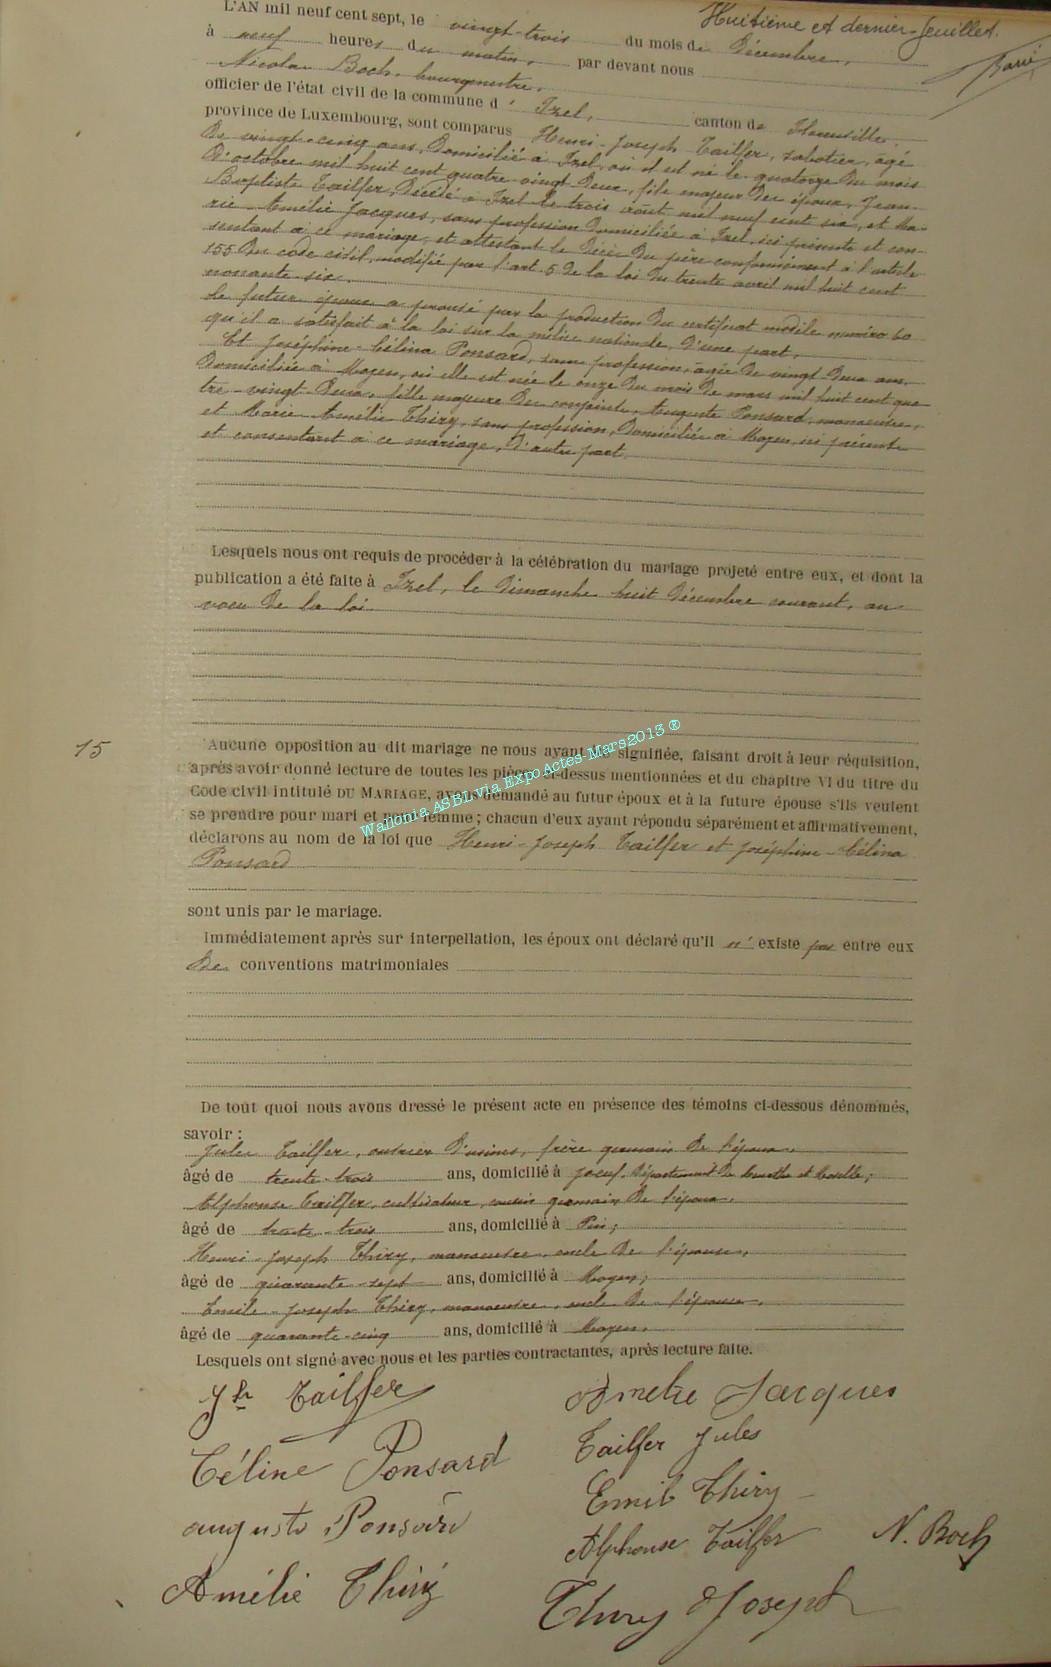 Huitième et dernier feuillet.
L'AN mil neuf cent sept, le vingt-trois du mois de Décembre,
à neuf heures du matin, par devant nous
Nicolas Boch, bourgmestre,
officier de l'état civil de la commune d' Izel, canton de Florenville
province de Luxembourg, sont comparus Henri-Joseph Tailfer, sabotier, âgé
de vingt-cinq ans, domicilié à Izel, où il est né le quatorze du mois
d'octobre mil huit cent quatre-vingt-deux, fils majeur des époux, Jean-
Baptiste Tailfer, décédé à Izel le trois août mil neuf cent six, et Ma-
rie-Amélie Jacques, sans profession domiciliée à Izel, ici présente et con-
sentant à ce mariage, et attestant le décès du père conformément à l'article
155 du code civil, modifié par l'art. 5 de la loi du trente avril mil huit cent
nonante six.
Le futur époux a prouvé par la production du certificat modèle numéro 60
qu'il a satisfait à la loi sur la milice nationale, d'une part,
Et Joséphine-Célina Ponsard, sans profession, agée de vingt-deux ans,
domiciliée à Moyen, où elle est née le onze du mois de mars mil huit cent qua-
tre-vingt-deux, fille majeure des conjoints, Auguste Ponsard, manoeuvre,
et Marie Amélie Thiry, sans profession, domiciliés à Moyen, ici présents
et consentant à ce mariage, d'autre part.
Lesquels nous ont requis de procéder à la célébration du mariage projeté entre eux, et dont la
publication a été faite à Izel, le dimanche huit décembre courant, au
voeu de la loi.
15
Aucune opposition au dit mariage ne nous ayant été signifiée, faisant droit à leur réquisition,
après avoir donné lecture de toutes les pièces ci-dessus mentionnées et du chapitre VI du titre du
Code civil intitulé DU MARIAGE, avons demandé au futur époux et à la future épouse s'ils veulent
se prendre pour mari et pour femme ; chacun d'eux ayant répondu séparément et affirmativement,
Wallonia ASBL via Expo Actes-Mars2013 ®
déclarons au nom de la loi que Henri-Joseph Tailfer et Joséphine-Célina
Ponsard
sont unis par le mariage.
Immédiatement après sur interpellation, les époux ont déclaré qu'il n' existe pas entre eux
de conventions matrimoniales
De tout quoi nous avons dressé le présent acte en présence des témoins ci-dessous dénommés,
savoir :
Jules Tailfer, ouvrier d'usines, frère germain de l'époux,
âgé de trente-trois ans, domicilié à Joeuf, département de Meurthe et Moselle ;
Alphonse Tailfer, cultivateur, cousin germain de l'époux,
âgé de trente-trois ans, domicilié à Pin ;
Henri-Joseph Thiry, manoeuvre, oncle de l'épouse,
âgé de quarante-sept ans, domicilié à Moyen ;
Emile-Joseph Thiry, manoeuvre, oncle de l'épouse,
âgé de quarante-cinq ans, domicilié à Moyen.
Lesquels ont signé avec nous et les parties contractantes, après lecture faite.
Jh Tailfer
Amélie Jacques
Céline Ponsard
Tailfer Jules
Emile Thiry
auguste Ponsard
Alphonse Tailfer
N. Boch
Amélie Thiry
Thiry Joseph